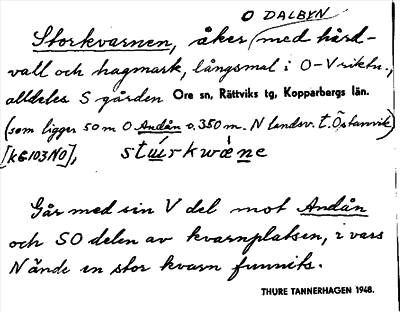 O DALBYN
Storkvarnen, åker med hård-
vall och hagmark, långsmal i O-V riktn.,
alldeles S gården Ore sn, Rättviks tg, Kopparbergs län.
(som ligger 50 m O Andån o. 350 m. N landsv. t. Östanvik)
[k6103 NO], stúurkwὲne
Går med sin V del mot Andån
och SO delen av kvarnplatsen, i vars
N ände en stor kvarn funnits.
THURE TANNERHAGEN 1948.